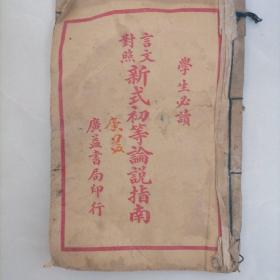 學生必讀
言文對照
新式初等論說指南
廣益書局印行